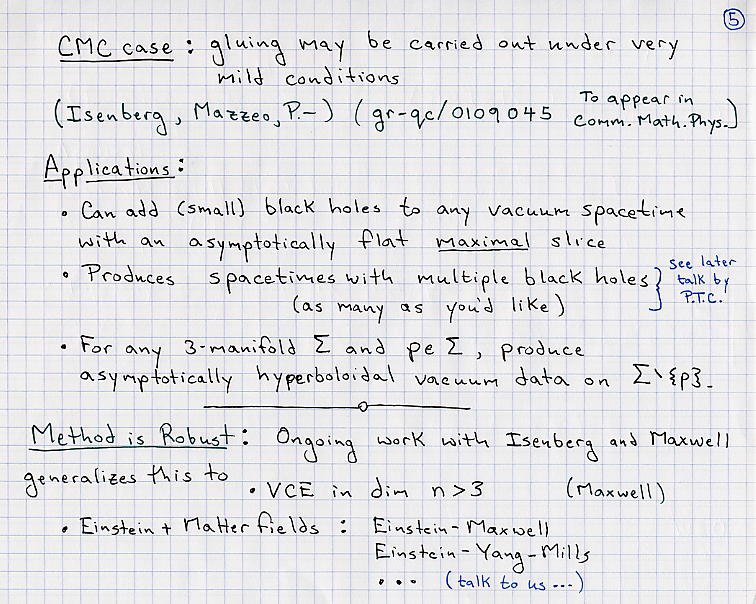 5
CMC case : gluing may be carried out under very
mild conditions
(Isenberg, Mazzeo, P.-) (gr-qc/0109045 To appear in
Comm. Math. Phys.)
Applications:
• Can add (small) black holes to any vacuum spacetime
with an asymptotically flat maximal slice
• Produces spacetimes with multiple black holes } see later
talk by
P.T.C.
(as many as you'd like)
• For any 3-manifold Σ and p ∈ Σ, produce
asymptotically hyperboloidal vacuum data on Σ\{p}.
Method is Robust: Ongoing work with Isenberg and Maxwell
generalizes this to
• VCE in dim n>3 (Maxwell)
• Einstein + Matter fields : Einstein-Maxwell
Einstein-Yang-Mills
• • • (talk to us ...)